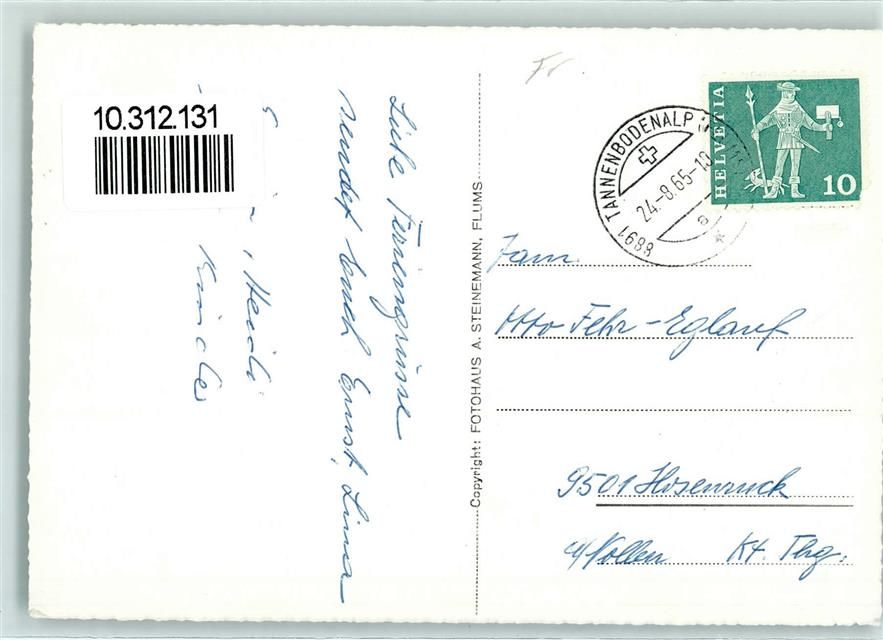 10.312.131
Liebe Feriengrüsse
sendet Euch Ernst, Lina
, Heidi
Kinder
Copyright: FOTOHAUS A. STEINEMANN, FLUMS
8891 TANNENBODENALP
24.-8.65-18
HELVETIA
10
Fam.
Otto Fehr-Eglauf
9501 Hosenruck
a/Nollen Kt. Thg.